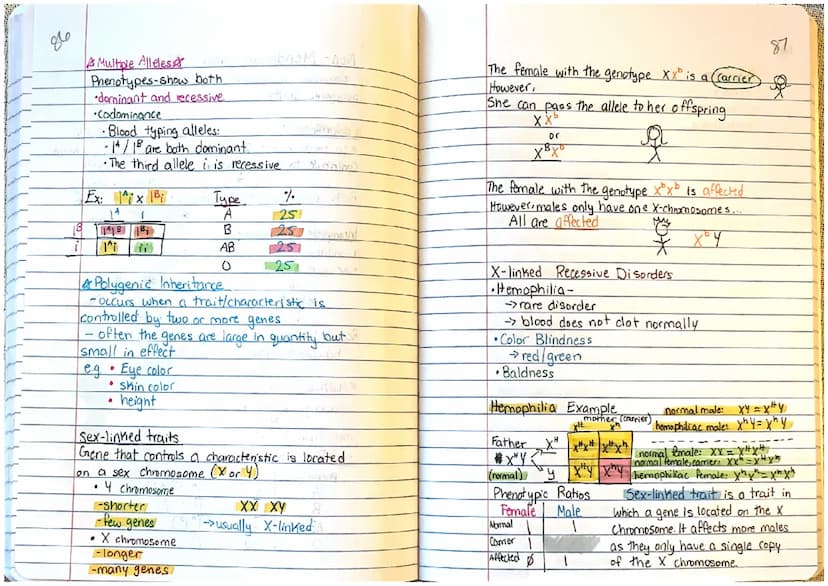 86
Multiple Alleles
Phenotypes-show both
•dominant and recessive
•codominance
•Blood typing alleles:
•I^A / I^B are both dominant
•The third allele i, is recessive
Ex: I^A i x I^B i
I^A i
I^B I^A I^B I^B i
i I^A i ii
Type %
A 25
B 25
AB 25
O 25
Polygenic Inheritance
- occurs when a trait/characteristic is
controlled by two or more genes
- often the genes are large in quantity but
small in effect
eg • Eye color
• skin color
• height
Sex-linked traits
Gene that controls a characteristic is located
on a sex chromosome (X or Y)
• Y chromosome
-shorter
-few genes
• X chromosome
-longer
-many genes
XX XY
→usually X-linked
87
The female with the genotype X X^b is a carrier
However,
She can pass the allele to her offspring
X X^b
or
X^B X^b
The female with the genotype X^b X^b is affected
However, males only have one X-chromosomes...
All are affected
X^b Y
X-linked Recessive Disorders
•Hemophilia-
→ rare disorder
→ blood does not clot normally
•Color Blindness
→ red/green
•Baldness
Hemophilia Example
normal male: XY = X^H Y
hemophiliac male: X^h Y = X^h Y
mother (carrier)
X^H X^h
Father
X^H Y
(normal)
X^H X^H X^H X^H X^h
Y X^H Y X^h Y
normal female: XX = X^H X^H
normal female, carrier: XX^h = X^H X^h
hemophiliac female: X^h X^h = X^h X^h
Phenotypic Ratios
Female Male
Normal 1 1
Carrier 1
Affected Ø 1
Sex-linked trait is a trait in
which a gene is located on the X
chromosome. It affects more males
as they only have a single copy
of the X chromosome.